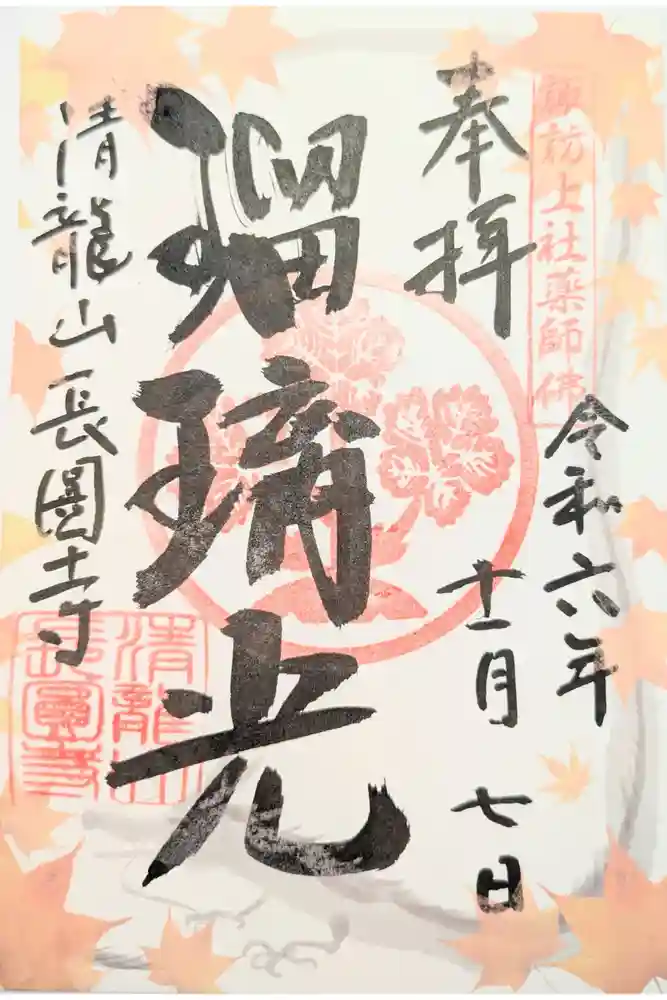 奉拝
諏訪上社薬師佛
令和六年
十一月
七日
瑠璃光
清龍山長圓寺
清龍山
長圓寺